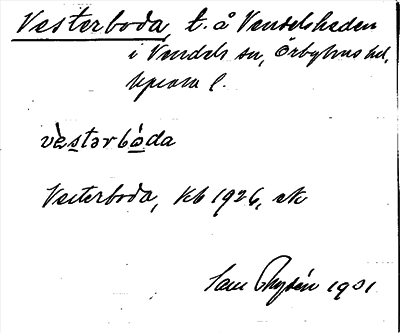 Vesterboda, t. å Vendelsheden
i Vendels sn, Örbyhus hd,
Upsala l.
vèstərbóda
Vesterboda, Kb 1926, ek
Sam 1931